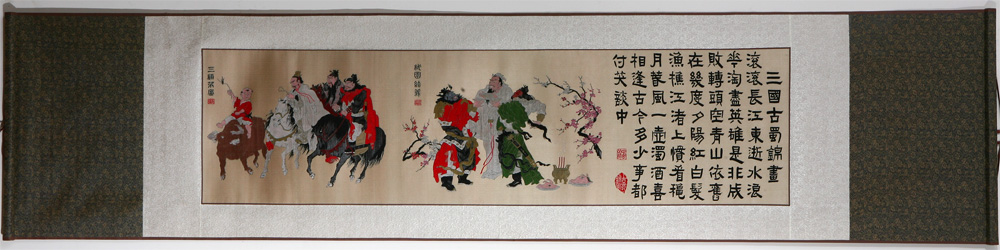 三國古蜀錦畫
滾滾長江東逝水浪
花淘盡英雄是非成
敗轉頭空青山依舊
在幾度夕陽紅白髮
漁樵江渚上慣看秋
月春風一壺濁酒喜
相逢古今多少事都
付笑談中
桃園結義
三顧茅廬